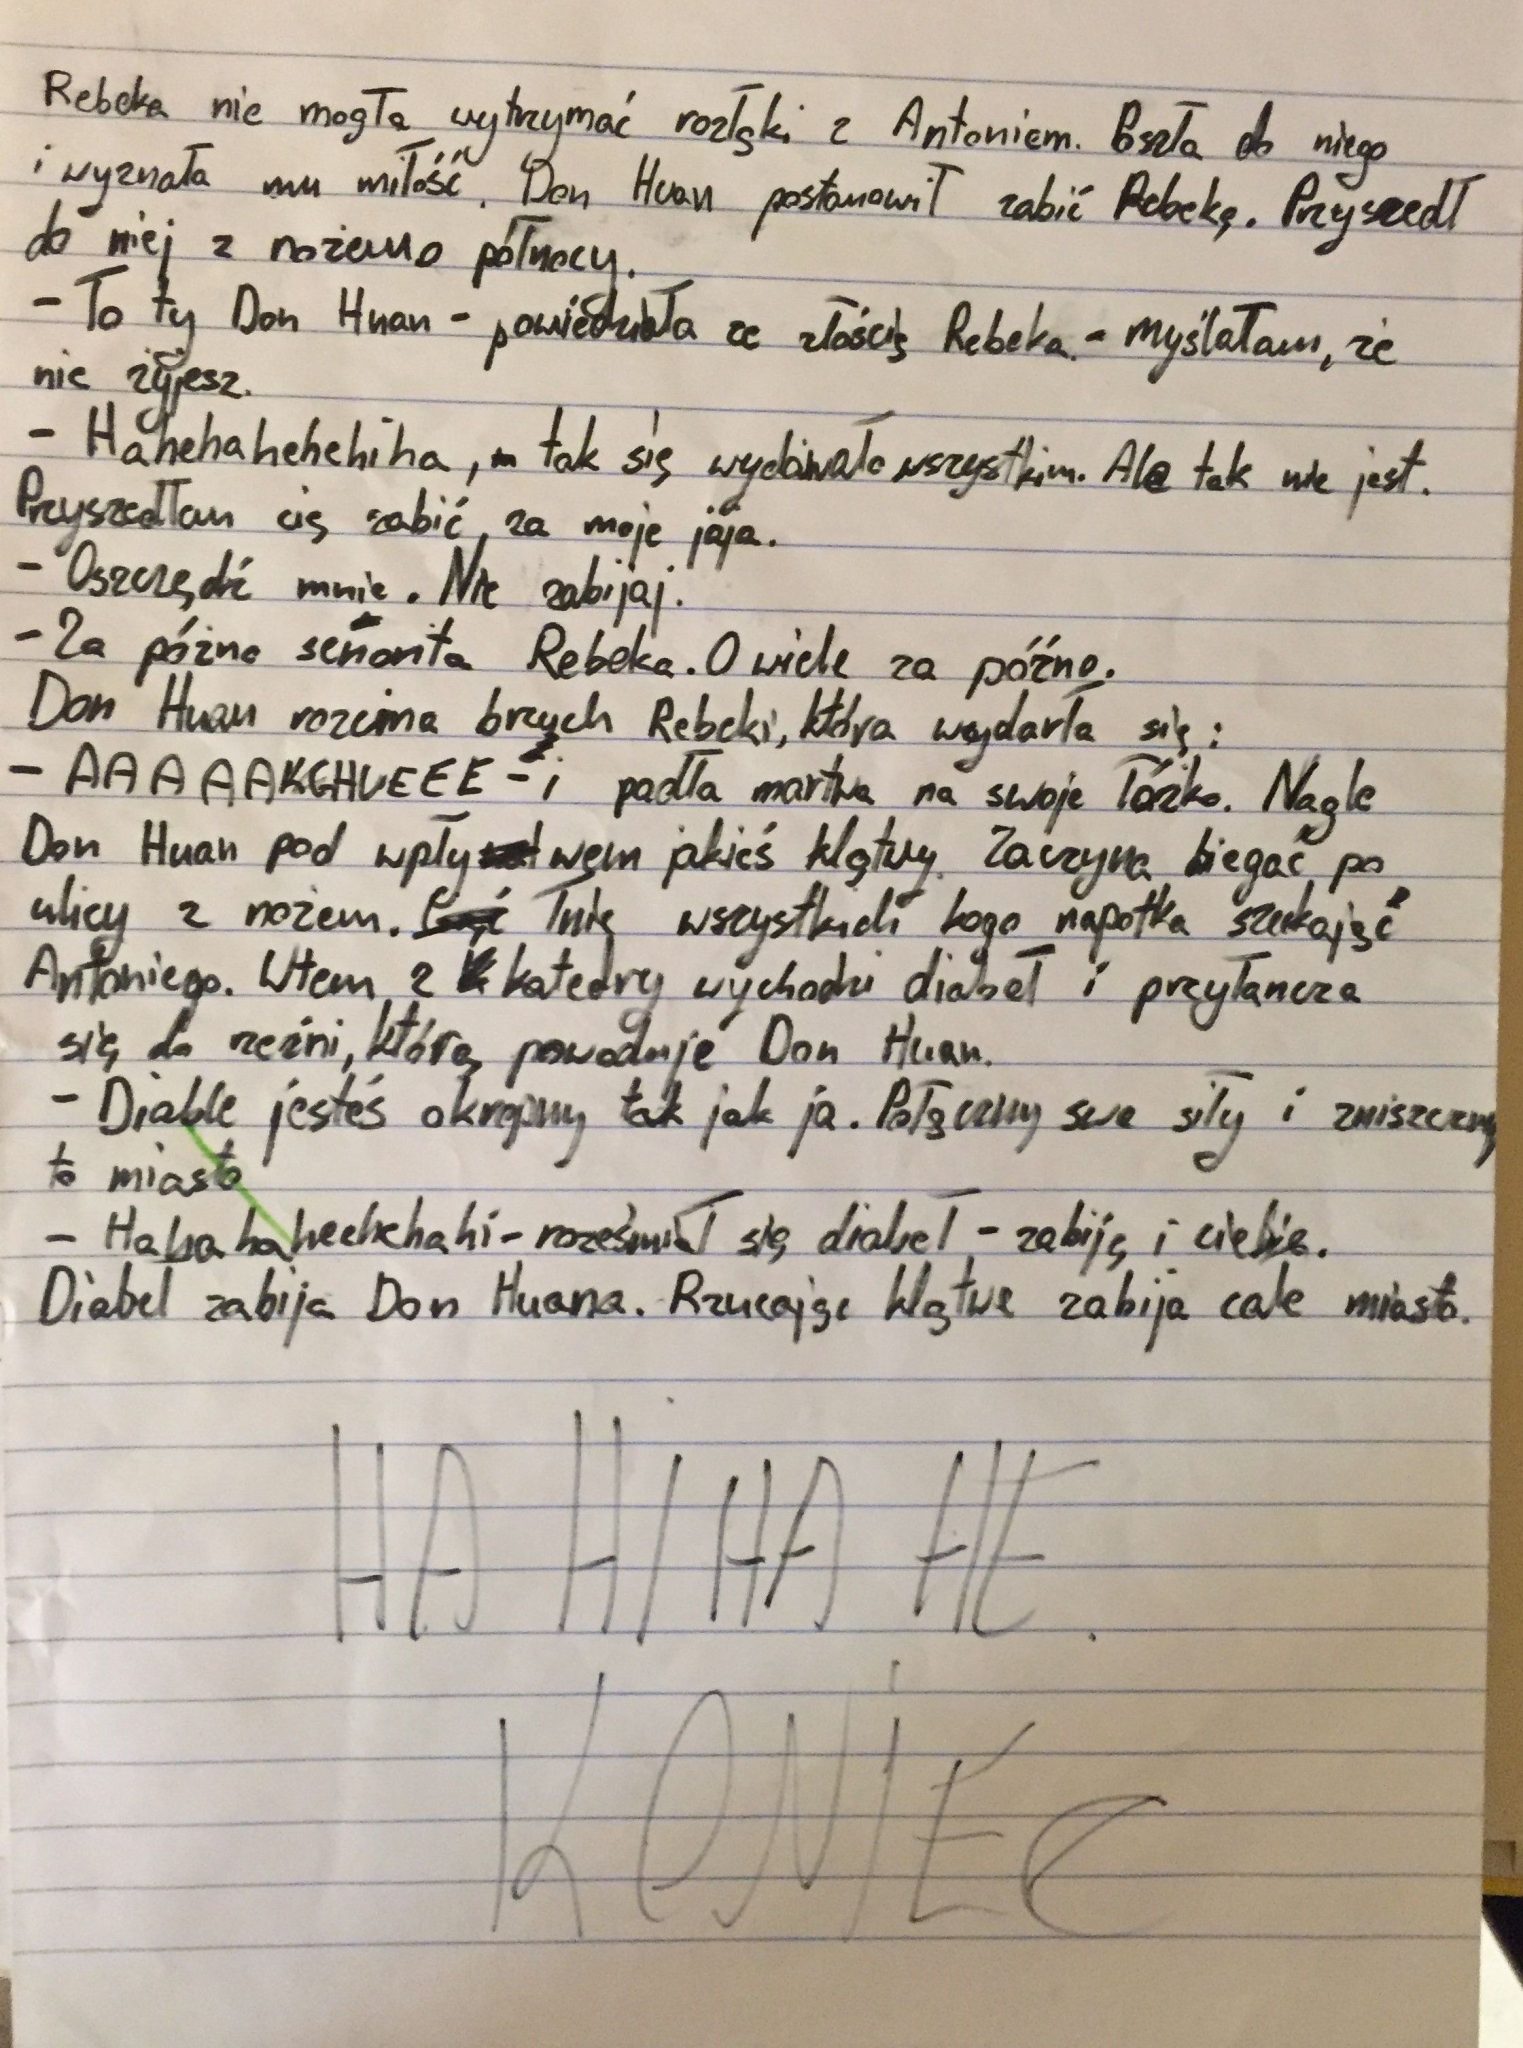 Rebeka nie mogła wytrzymać rozłąki z Antoniem. Poszła do niego
i wyznała mu miłość. Don Huan postanowił zabić Rebekę. Przyszedł
do niej z nożem o północy.
- To ty Don Huan - powiedziała ze złością Rebeka. - Myślałam, że
nie żyjesz.
- Hahehahehehiha, tak się wydawało wszystkim. Ale tak nie jest.
Przyszedłem cię zabić, za moje jaja.
- Oszczędź mnie. Nie zabijaj.
- Za późno señorita Rebeka. O wiele za późno.
Don Huan rozcina brzuch Rebeki, która wydarła się:
- AAAAAKGHUEEE - i padła martwa na swoje łóżko. Nagle
Don Huan pod wpływem jakieś klątwy. Zaczyna biegać po
ulicy z nożem. Tnie wszystkich kogo napotka szukając
Antoniego. Wtem z katedry wychodzi diabeł i przyłancza
się do rzeźni, którą powoduje Don Huan.
- Diable jesteś okropny tak jak ja. Połączmy swe siły i zniszczmy
to miasto
- Hahahahechehahi - roześmiał się diabeł - zabiję i ciebie.
Diabeł zabija Don Huana. Rzucając klątwe zabija całe miasto.
HA HI HA HE.
KONIEC